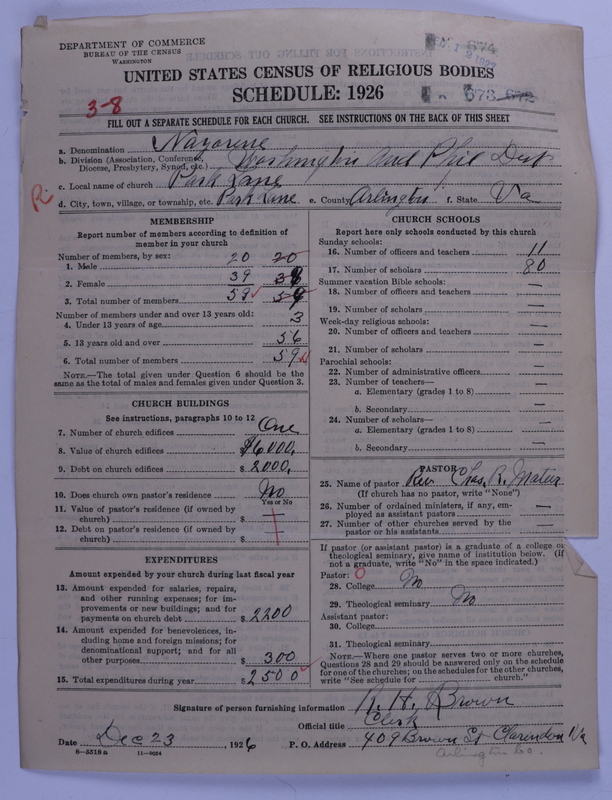 DEPARTMENT OF COMMERCE
BUREAU OF THE CENSUS
WASHINGTON
674
UNITED STATES CENSUS OF RELIGIOUS BODIES
SCHEDULE: 1926
673 672
3-8
FILL OUT A SEPARATE SCHEDULE FOR EACH CHURCH. SEE INSTRUCTIONS ON THE BACK OF THIS SHEET
a. Denomination Nazarene
b. Division (Association, Conference, Diocese, Presbytery, Synod, etc.) Washington and Phil Dist
c. Local name of church Park Lane
R
d. City, town, village, or township, etc. Park Lane e. County Arlington f. State Va
MEMBERSHIP
Report number of members according to definition of
member in your church
Number of members, by sex:
1. Male 20 20
2. Female 39 38
3. Total number of members 59 59
Number of members under and over 13 years old:
4. Under 13 years of age 3
5. 13 years old and over 56
6. Total number of members 59
NOTE.—The total given under Question 6 should be the
same as the total of males and females given under Question 3.
CHURCH BUILDINGS
See instructions, paragraphs 10 to 12
7. Number of church edifices One
8. Value of church edifices $6000.
9. Debt on church edifices $2000.
10. Does church own pastor's residence No
Yes or No
11. Value of pastor's residence (if owned by
church) $ —
12. Debt on pastor's residence (if owned by
church) $ —
EXPENDITURES
Amount expended by your church during last fiscal year
13. Amount expended for salaries, repairs,
and other running expenses; for im-
provements or new buildings; and for
payments on church debt $2200
14. Amount expended for benevolences, in-
cluding home and foreign missions; for
denominational support; and for all
other purposes $300
15. Total expenditures during year $2500
CHURCH SCHOOLS
Report here only schools conducted by this church
Sunday schools:
16. Number of officers and teachers 11
17. Number of scholars 80
Summer vacation Bible schools:
18. Number of officers and teachers —
19. Number of scholars —
Week-day religious schools:
20. Number of officers and teachers —
21. Number of scholars —
Parochial schools:
22. Number of administrative officers —
23. Number of teachers—
a. Elementary (grades 1 to 8) —
b. Secondary —
24. Number of scholars—
a. Elementary (grades 1 to 8) —
b. Secondary —
PASTOR
25. Name of pastor Rev Chas. R.
(If church has no pastor, write "None")
26. Number of ordained ministers, if any, em-
ployed as assistant pastors —
27. Number of other churches served by the
pastor or his assistants —
If pastor (or assistant pastor) is a graduate of a college or
theological seminary, give name of institution below. (If
not a graduate, write "No" in the space indicated.)
Pastor: 0
28. College No
29. Theological seminary No
Assistant pastor:
30. College
31. Theological seminary
NOTE.—Where one pastor serves two or more churches,
Questions 28 and 29 should be answered only on the schedule
for one of the churches; on the schedules for the other churches,
write "See schedule for church."
Signature of person furnishing information R. H. Brown
Official title Clerk
Date Dec 23, 1926 P. O. Address 409 Brown St Clarendon Va
8-5518 a 11-9024
Arlington Co.